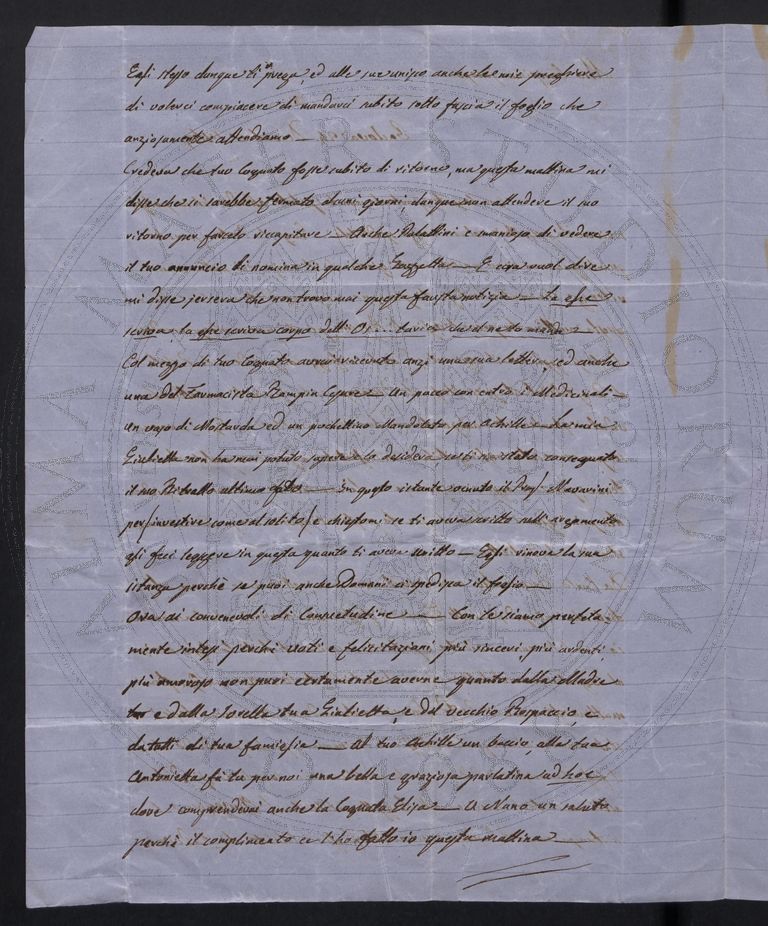 Egli stesso dunque ti prega, ed alle sue unisco anche le mie preghiere
di volerci compiacere di mandarci subito sotto fascia il foglio che
anziosamente attendiamo —
Credeva che tuo Cognato fosse subito di ritorno, ma questa mattina mi
disse che si sarebbe fermato alcuni giorni, dunque non attendere il suo
ritorno per farcelo ricapitare — Anche Pallattini è manioso di vedere
il tuo annuncio di nomina in qualche Gazzetta — E cosa vuol dire
mi disse jersera che non trovo mai questa fausta notizia —
Col mezzo di tuo Cognato avrai ricevuto anzi una sua lettera, ed anche
una del Farmacista Rampin Cesare — Un pacco con entro i Medicinali —
un vaso di Mostarda ed un pachettino Mandolato per Achille — La mia
Giulietta non ha mai potuto sapere e lo desidera se ti sia stato consegnato
il suo Ritratto ultimo fatto — In questo istante venuto il Prof.
per investire come al solito / e chiestomi se ti aveva scritto nell'argomento
gli feci leggere in questa quanto ti aveva scritto — Egli rinova la sua
istanza perchè se puoi anche Domani ci spedisca il foglio —
Ora ai convenevoli di Consuetudine — Con te siamo perfeta-
mente intesi perchè voti e felicitazioni più sinceri, più ardenti,
più amorosi non puoi certamente averne quanto dalla Madre
e dalla Sorella tua Giulietta, e dal vecchio e
da tutti di tua famiglia — Al tuo Achille un baccio, alla tua
Antonietta fa tu per noi una bella e graziosa parlatina ad hoc
dove comprenderai anche la Cognata Elisa — A Nane un saluto
perchè il complimento ce l'ho fatto io questa mattina —